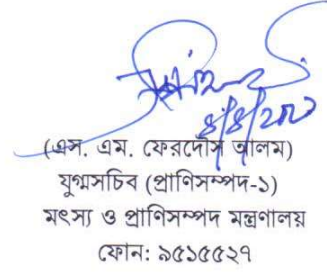 (এস. এম. ফেরদৌস আলম)
যুগ্মসচিব (প্রাণিসম্পদ-১)
মৎস্য ও প্রাণিসম্পদ মন্ত্রণালয়
ফোন: ৯৫১৫৫২৭